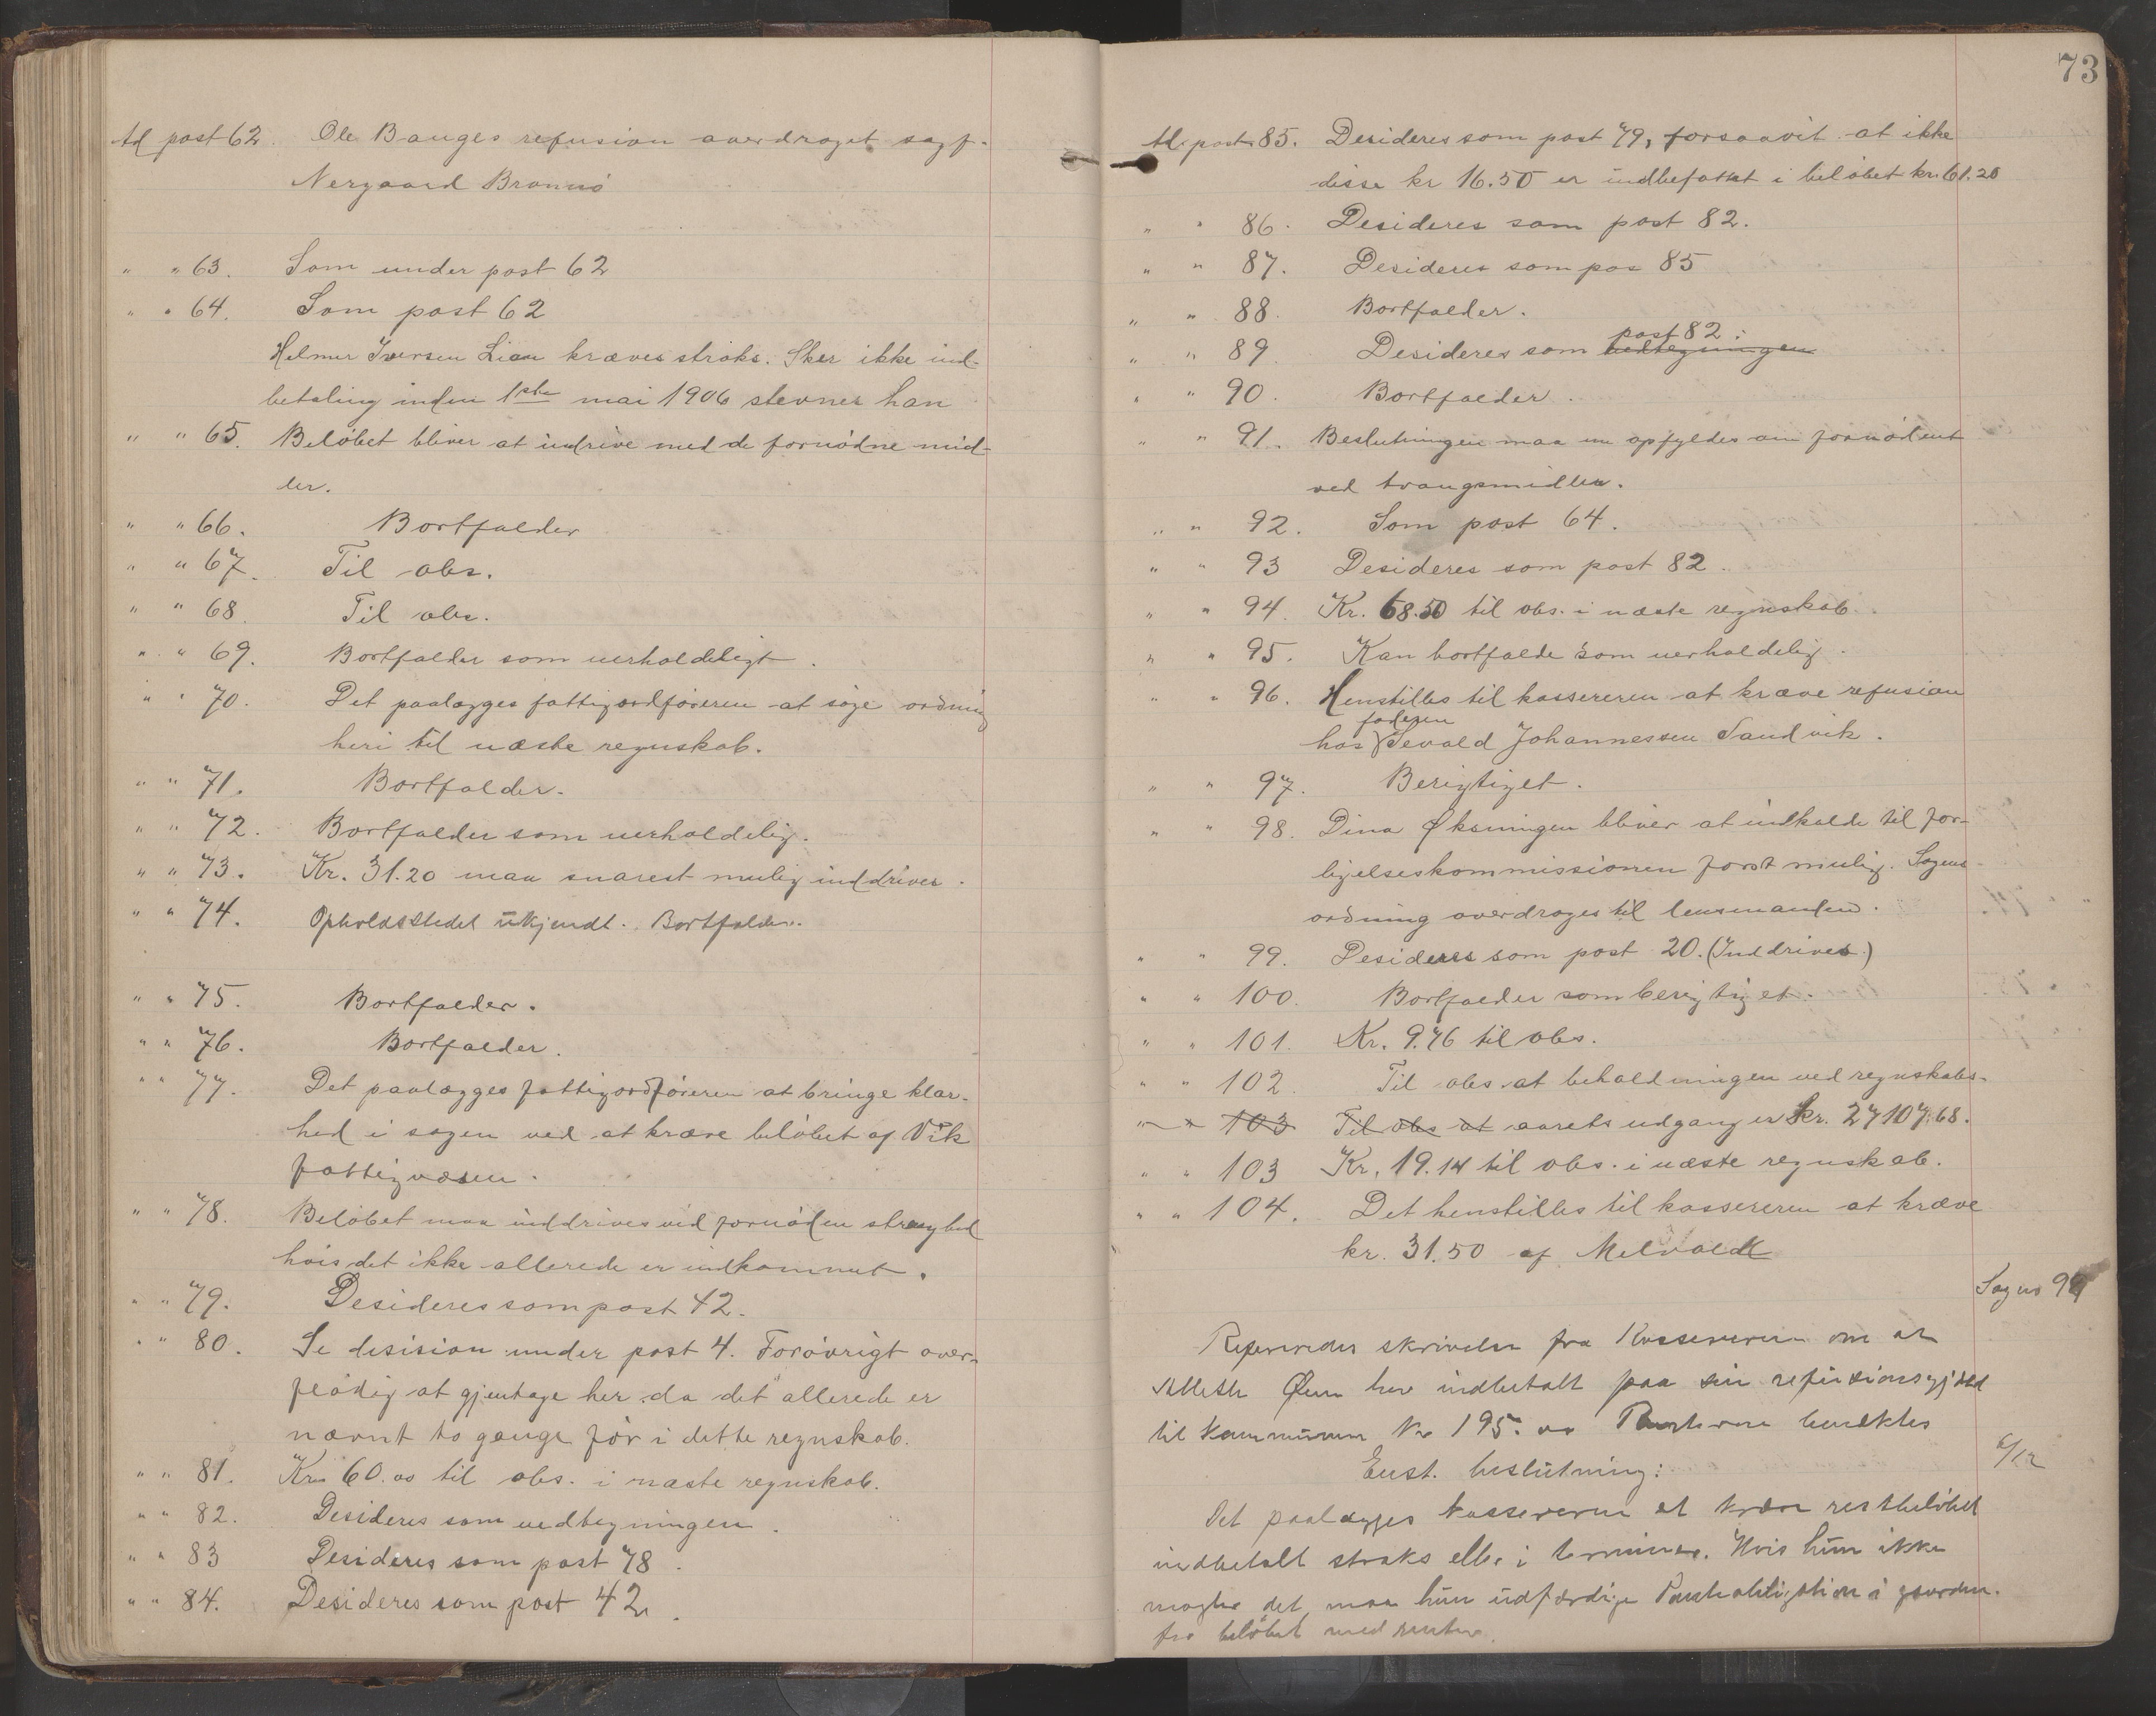 til post 62. Ole Bauges refusion overdraget sagf.
Nergaard Brønnö
" " 63. Som under post 62
" " 64. Som post 62
Helmer Iversen Lian kræves straks. Sker ikke ind-
betaling inden 1ste mai 1906 stevner han
" " 65. Belöbet bliver at indrive med de fornödne mid-
ler.
" " 66. Bortfalder
" " 67. Til obs.
" " 68 Til obs.
" " 69. Bortfalder som uerholdeligt.
" " 70. Det paalægges fattigordföreren at söge ordning
heri til næste regnskab.
" " 71. Bortfalder.
" " 72. Bortfalder som uerholdelig.
" " 73. Kr. 31.20 maa snarest mulig inddrives.
" " 74. Opholdsstedet ukjendt. Bortfalder.
" " 75. Bortfalder.
" " 76. Bortfalder.
" " 77. Det paalægges fattigordföreren at bringe klar-
hed i sagen ved at kræve belöbet af Vik
fattigvæsen.
" " 78. Belöbet maa inddrives ved fornöden strenghed
hvis det ikke allerede er indkommet.
" " 79. Desideres som post 42.
" " 80. Se desision under post 4. Forövrigt over-
flödig at gjentage her da det allerede er
nævnt to gange för i dette regnskab.
" " 81. Kr. 60.00 til obs. i næste regnskab.
" " 82. Desideres som vedtegningen.
" " 83 Desideres som post 78.
" " 84. Desideres som post 42.
73
til post 85. Desideres som post 79, forsaavit at ikke
disse kr 16.50 er indbefattet i belöbet kr. 61.20
" " 86. Desideres som post 82.
" " 87. Desideres som pos 85
" " 88. Bortfalder.
post 82.
" " 89 Desideres som vedtegningen
" " 90. Bortfalder.
" " 91. Beslutningen maa nu opfyldes om fornödent
ved tvangsmidler.
" " 92. Som post 64.
" " 93 Desideres som post 82.
" " 94. Kr. 68.50 til obs. i næste regnskab.
" " 95. Kan bortfalde som uerholdelig.
" " 96. Henstilles til kassereren at kræve refusion
faderen
hos Sevald Johannessen Sandvik.
" " 97. Berigtiget.
" " 98. Dina Øksningen bliver at indkalde til for-
ligelseskommissionen först mulig. Sagens
ordning overdrages til lensmanden.
" " 99. Desideres som post 20. (Inddrives.)
" " 100. Bortfalder som berigtiget.
" " 101. Kr. 9.76 til obs.
" " 102. Til obs at beholdningen ved regnskabs-
" " 103 Til obs at aarets udgang er kr. 27107.68.
" " 103 Kr. 19.14 til obs. i næste regnskab.
" " 104. Det henstilles til kassereren at kræve
kr. 31.50 af Melvold
Sag no 99
Refereredes skrivelse fra Kassereren om at
Øen har indbetalt paa sin refusionsgjæld
til Kommunen Kr 195.00
6/12
Enst. beslutning:
Det paalægges kassereren at kræve restbelöbet
indbetalt straks eller i terminer. Hvis hun ikke
magter det maa hun udfærdige Panteobligation i gaarden
for belöbet med renter.